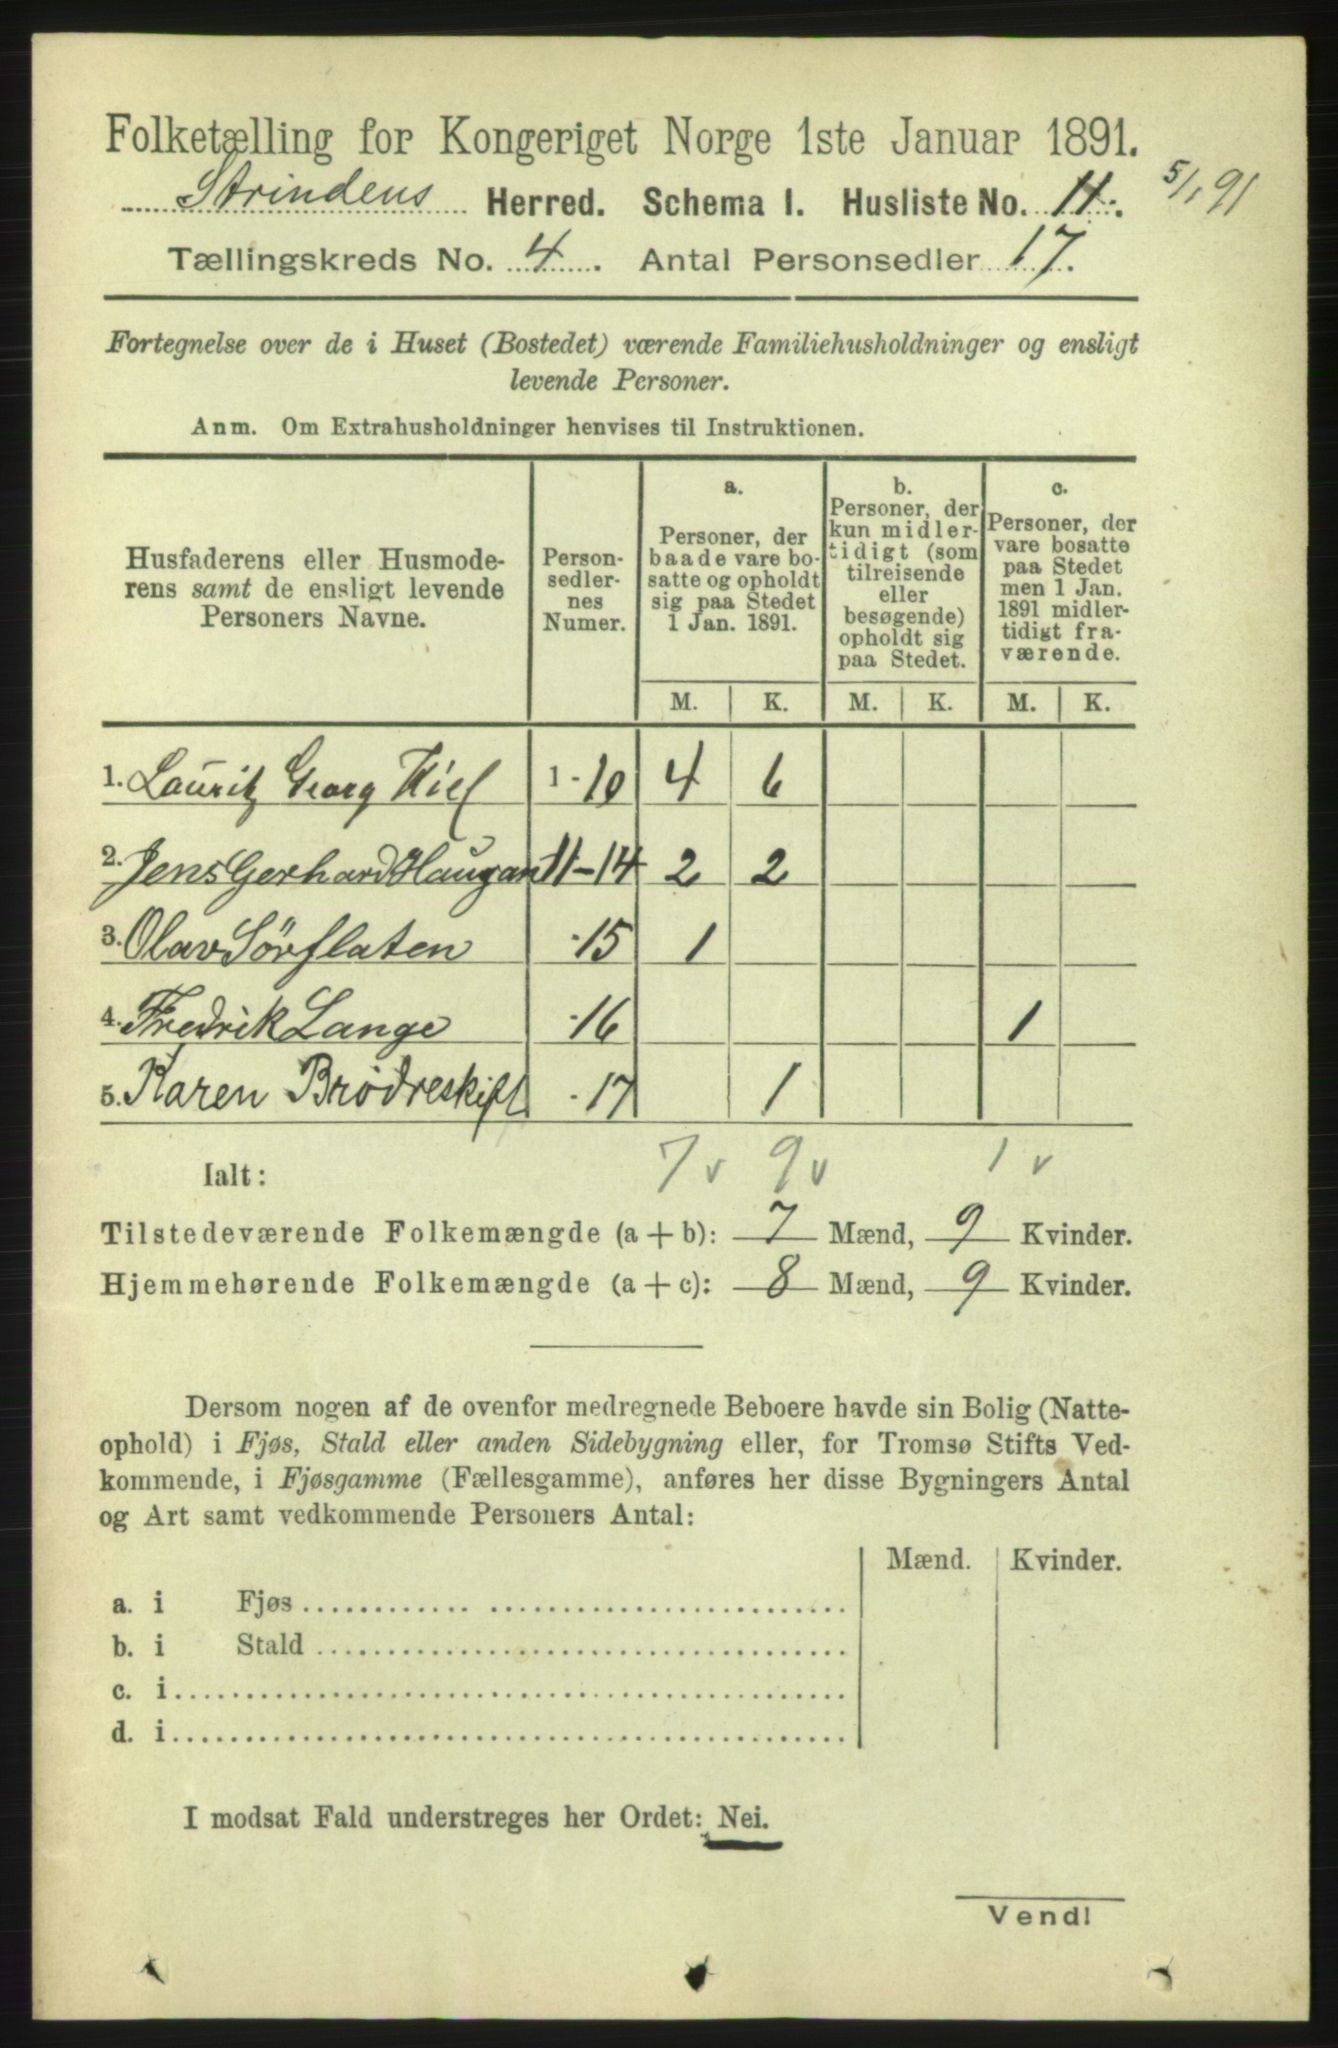 Folketælling for Kongeriget Norge 1ste Januar 1891.
Strindens Herred. Schema I. Husliste No. 11. 5/1 91
Tællingskreds No. 4. Antal Personsedler 17.
Fortegnelse over de i Huset (Bostedet) værende Familiehusholdninger og ensligt
levende Personer.
Anm. Om Extrahusholdninger henvises til Instruktionen.
Husfaderens eller Husmode-
rens samt de ensligt levende
Personers Navne.
Person-
sedler-
nes
Numer.
a.
Personer, der
baade vare bo-
satte og opholdt
sig paa Stedet
1 Jan. 1891.
b.
Personer, der
kun midler-
tidigt (som
tilreisende
eller
besøgende)
opholdt sig
paa Stedet.
c.
Personer, der
vare bosatte
paa Stedet
men 1 Jan.
1891 midler-
tidigt fra-
værende.
M. K. M. K. M. K.
1. Lauritz Georg Kiel 1 - 10 4 6
2. Jens Gerhard Haugan 11-14 2 2
3. Olav Sörflaten -15 1
4. Fredrik Lange -16 1
5. Karen Brödreskift -17 1
Ialt: 7 v 9 v 1 v
Tilstedeværende Folkemængde (a + b): 7 Mænd, 9 Kvinder.
Hjemmehørende Folkemængde (a + c): 8 Mænd, 9 Kvinder.
Dersom nogen af de ovenfor medregnede Beboere havde sin Bolig (Natte-
ophold) i Fjøs, Stald eller anden Sidebygning eller, for Tromsø Stifts Ved-
kommende, i Fjøsgamme (Fællesgamme), anføres her disse Bygningers Antal
og Art samt vedkommende Personers Antal:
Mænd. Kvinder.
a. i Fjøs
b. i Stald
c. i
d. i
I modsat Fald understreges her Ordet: Nei.
Vend!